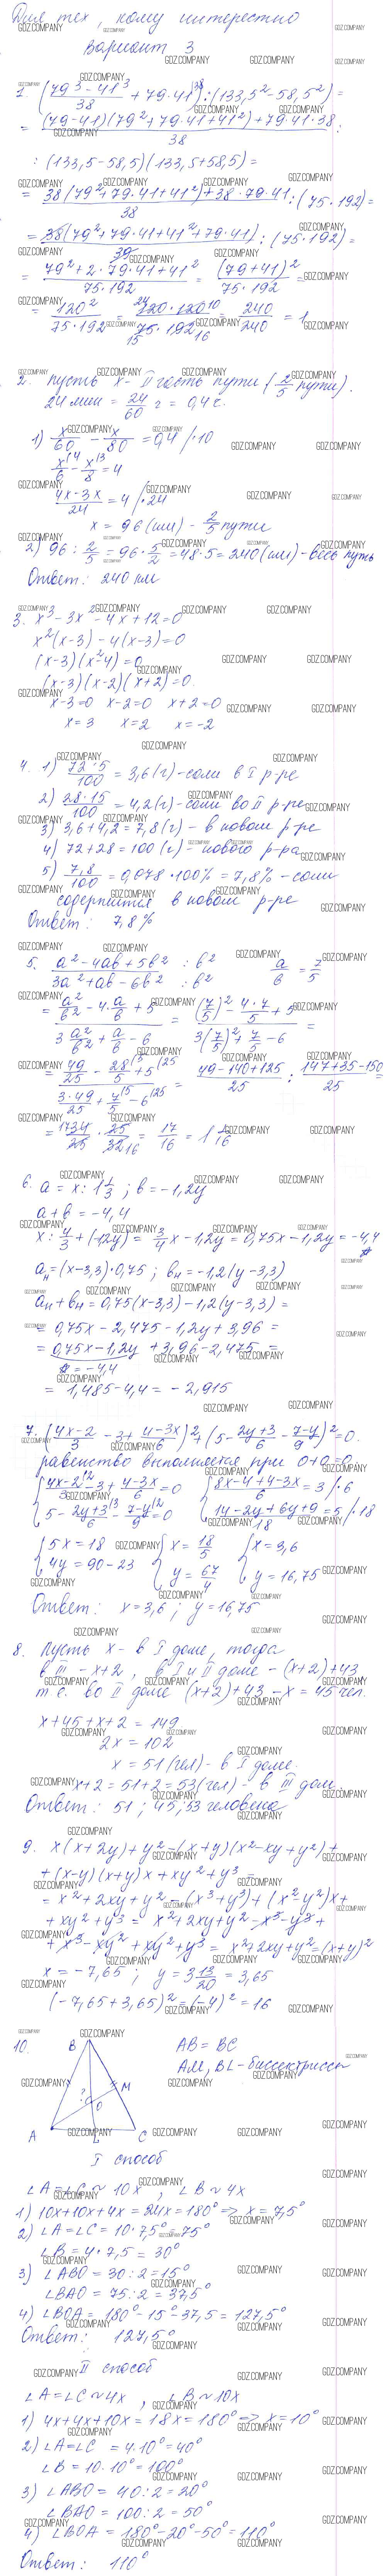 Для тех, кому интересно
Вариант 3
1. ((79³ - 41³)/38 + 79·41) : (133,5² - 58,5²) =
= ((79-41)(79² + 79·41 + 41²) + 79·41·38)/38 :
: (133,5 - 58,5)(133,5 + 58,5) =
= (38(79² + 79·41 + 41²) + 38·79·41)/38 : (75·192) =
= (38(79² + 79·41 + 41² + 79·41))/38 : (75·192) =
= (79² + 2·79·41 + 41²)/(75·192) = (79 + 41)²/(75·192) =
= 120²/(75·192) = (120·120)/(75·192) = 240/240 = 1
2. Пусть x - II часть пути (2/5 пути).
24 мин = 24/60 г = 0,4 г.
1) x/60 - x/80 = 0,4 /·10
x/6 - x/8 = 4
(4x - 3x)/24 = 4 /·24
x = 96 (км) - 2/5 пути
2) 96 : 2/5 = 96 · 5/2 = 48·5 = 240 (км) - весь путь
Ответ: 240 км
3. x³ - 3x² - 4x + 12 = 0
x²(x-3) - 4(x-3) = 0
(x-3)(x²-4) = 0
(x-3)(x-2)(x+2) = 0
x-3=0 x-2=0 x+2=0
x=3 x=2 x=-2
4. 1) (72·5)/100 = 3,6 (г) - соли в I р-ре
2) (28·15)/100 = 4,2 (г) - соли во II р-ре
3) 3,6 + 4,2 = 7,8 (г) - в новом р-ре
4) 72 + 28 = 100 (г) - нового р-ра
5) 7,8/100 = 0,078·100% = 7,8% - соли
содержится в новом р-ре
Ответ: 7,8%
5. (a² - 4ab + 5b²)/(3a² + ab - 6b²) : b² : b² a/b = 7/5
= (a²/b² - 4·a/b + 5)/(3 a²/b² + a/b - 6) = ((7/5)² - 4·7/5 + 5)/(3(7/5)² + 7/5 - 6) =
= (49/25 - 28/5 + 5)/(3·49/25 + 7/5 - 6) = (49 - 140 + 125)/25 : (147 + 35 - 150)/25 =
= 34/25 · 25/32 = 17/16 = 1 1/16
6. a = x : 1 1/3 ; b = -1,2y
a + b = -4,4
x : 4/3 + (-1,2y) = 3/4 x - 1,2y = 0,75x - 1,2y = -4,4
aн = (x - 3,3)·0,75 ; bн = -1,2(y - 3,3)
aн + bн = 0,75(x - 3,3) - 1,2(y - 3,3) =
= 0,75x - 2,475 - 1,2y + 3,96 =
= 0,75x - 1,2y + 3,96 - 2,475 =
= -4,4
= 1,485 - 4,4 = -2,915
7. ((4x-2)/3 - 3 + (4-3x)/6)² + (5 - (2y+3)/6 - (7-y)/9)² = 0.
равенство выполняется при 0+0=0
{(4x-2)/3 - 3 + (4-3x)/6 = 0 {(8x - 4 + 4 - 3x)/6 = 3 /·6
5 - (2y+3)/6 - (7-y)/9 = 0 (14 - 2y + 6y + 9)/18 = 5 /·18
{5x = 18 {x = 18/5 {x = 3,6
4y = 90 - 23 y = 67/4 y = 16,75
Ответ: x = 3,6 ; y = 16,75
8. Пусть x - в I доме, тогда
в III - x+2, в I и II доме - (x+2)+43,
т.е. во II доме (x+2)+43 - x = 45 чел.
x + 45 + x + 2 = 149
2x = 102
x = 51 (чел) - в I доме.
x+2 = 51+2 = 53 (чел) - в III дом.
Ответ: 51 ; 45 ; 53 человека
9. x(x+2y) + y² - (x+y)(x² - xy + y²) +
+ (x-y)(x+y)x + xy² + y³ =
= x² + 2xy + y² - (x³ + y³) + (x² - y²)x +
+ xy² + y³ = x² + 2xy + y² - x³ - y³ +
+ x³ - xy² + xy² + y³ = x² + 2xy + y² = (x+y)²
x = -7,65 ; y = 3 13/20 = 3,65
(-7,65 + 3,65)² = (-4)² = 16
10. AB = BC
AM, BL - биссектрисы
B
M
?
O
A L C
I способ
∠A = ∠C ~ 10x , ∠B ~ 4x
1) 10x + 10x + 4x = 24x = 180° => x = 7,5°
2) ∠A = ∠C = 10·7,5° = 75°
∠B = 4·7,5 = 30°
3) ∠ABO = 30 : 2 = 15°
∠BAO = 75 : 2 = 37,5°
4) ∠BOA = 180° - 15° - 37,5 = 127,5°
Ответ: 127,5°
II способ
∠A = ∠C ~ 4x , ∠B ~ 10x
1) 4x + 4x + 10x = 18x = 180° => x = 10°
2) ∠A = ∠C = 4·10° = 40°
∠B = 10·10° = 100°
3) ∠ABO = 40 : 2 = 20°
∠BAO = 100 : 2 = 50°
4) ∠BOA = 180° - 20° - 50° = 110°
Ответ: 110°